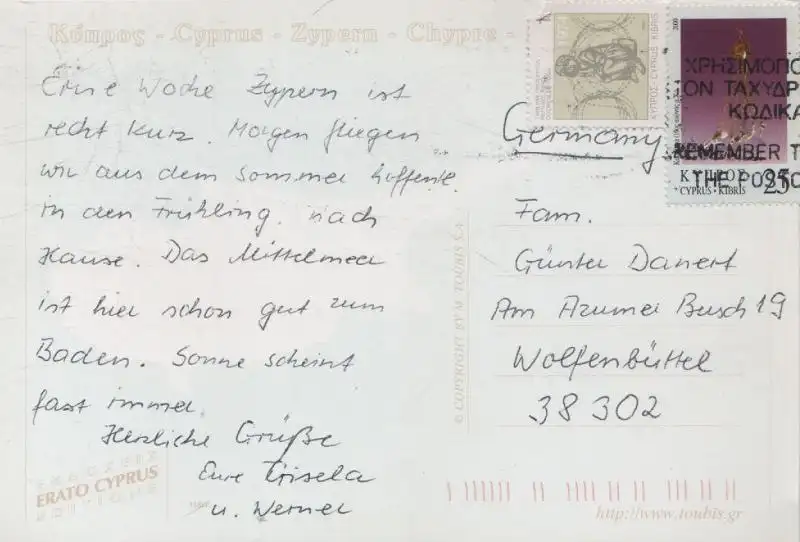 Κύπρος - Cyprus - Zypern - Chypre -
Eine Woche Zypern ist
recht kurz. Morgen fliegen
wir aus dem Sommer hoffentl.
in den Frühling nach
Hause. Das Mittelmeer
ist hier schon gut zum
Baden. Sonne scheint
fast immer.
Herzliche Grüße
Eure Gisela
u. Werner
ERATO CYPRUS
© COPYRIGHT BY M. TOUBIS S.A.
ΚΥΠΡΟΣ CYPRUS KIBRIS
2000
ΧΡΗΣΙΜΟΠΟ
ΤΟΝ ΤΑΧΥΔΡ
ΚΩΔΙΚΑ
REMEMBER T
THE POSTCO
ΚΥΠΡΟΣ
CYPRUS · KIBRIS
25
Germany
Fam.
Günter Danert
Am Atzumer Busch 19
Wolfenbüttel
38 302
http://www.toubis.gr